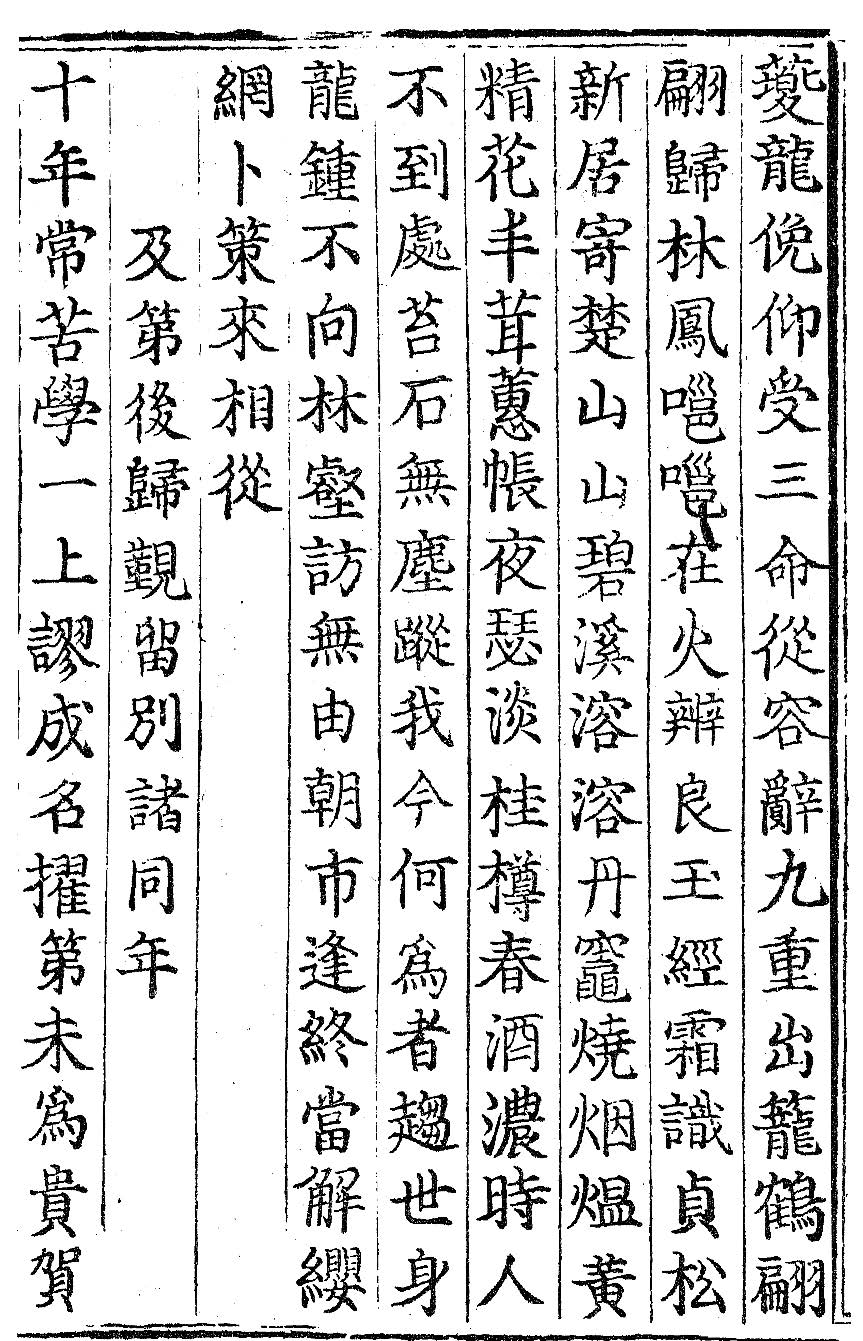 夔龍俛仰受三命從容辭九重出籠鶴翩
翩歸林鳳噰噰在火辨良玉經霜識貞松
新居寄楚山山碧溪溶溶丹竈燒烟熅黃
精花半茸蕙帳夜瑟淡桂樽春酒濃時人
不到處苔石無塵蹤我今何爲者趨世身
龍鍾不向林壑訪無由朝市逢終當解纓
網卜策來相從
及第後歸覲留別諸同年
十年常苦學一上謬成名擢第未爲貴賀